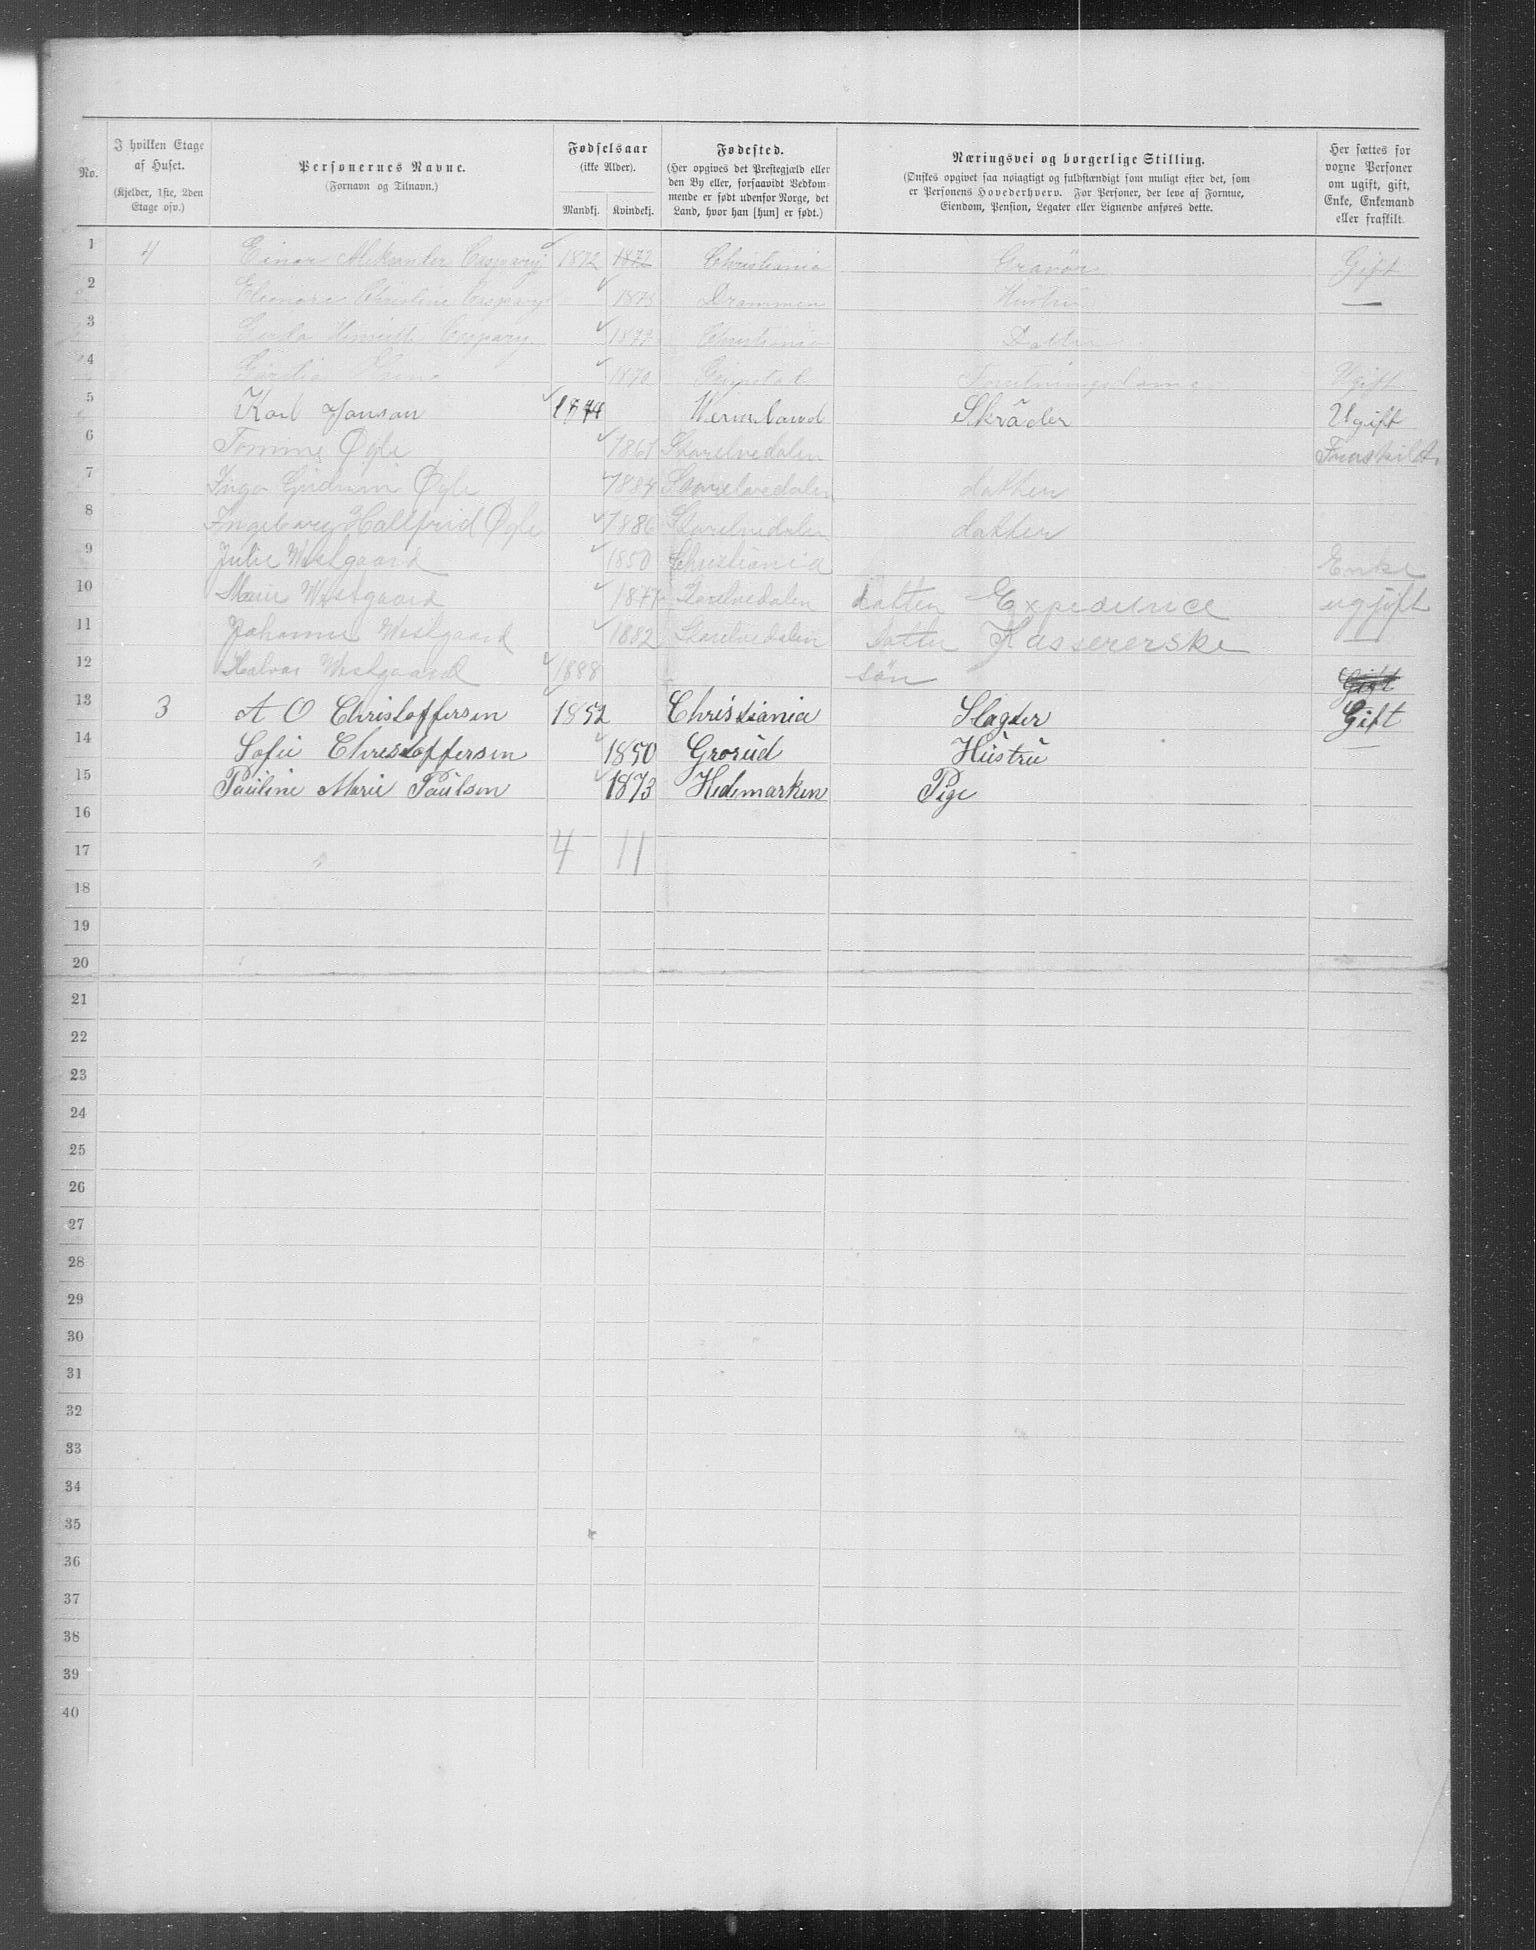 No.
I hvilken Etage af Huset.
(Kjelder, 1ste, 2den Etage osv.)
Personernes Navne.
(Fornavn og Tilnavn.)
Fødselsaar
(ikke Alder).
Mandkj. Kvindekj.
Fødested.
(Her opgives det Prestegjæld eller
den By eller, forsaavidt Vedkom-
mende er født udenfor Norge, det
Land, hvor han [hun] er født.)
Næringsvei og borgerlige Stilling.
(Ønskes opgivet saa nøiagtigt og fuldstændigt som muligt efter det, som
er Personens Hovederhverv. For Personer, der leve af Formue,
Eiendom, Pension, Legater eller Lignende anføres dette.
Her sættes for
voxne Personer
om ugift, gift,
Enke, Enkemand
eller fraskilt.
1 4 Einar Aleksander Caspary 1872 1872 Christiania Gravør Gift
2 Eleonora Christine Caspary 1873 Drammen Hustru —
3 Caspary 1899 Christiania Datter
4 1870 Grimstad Ugift
5 Karl Janson 1874 Wermland Skräder Ugift
6 Tomine Øgle 1861 Storelvedalen Fraskildt
7 Inga Gudruni Øgle 1884 Storelvedalen datter
8 Ingeborg Hallfrid Øgle 1886 Storelvedalen datter
9 Julie Westgaard 1850 Christiania Enke
10 Marie Westgaard 1877 Storelvedalen datter Expeditrice ugift
11 Johanne Westgaard 1882 Storelvedalen datter Kassererske —
12 Halvor Westgaard 1888 søn Gift
13 3 A O Christoffersen 1852 Christiania Slagter Gift
14 Sofie Christoffersen 1850 Grorud Hustru —
15 Pauline Marie Paulsen 1873 Hedemarken Pige
16
17 4 11
18
19
20
21
22
23
24
25
26
27
28
29
30
31
32
33
34
35
36
37
38
39
40